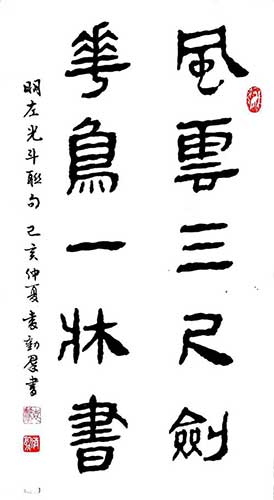 風雲三尺劍
花鳥一牀書
明左光斗聯句 己亥仲夏 袁勁羣書